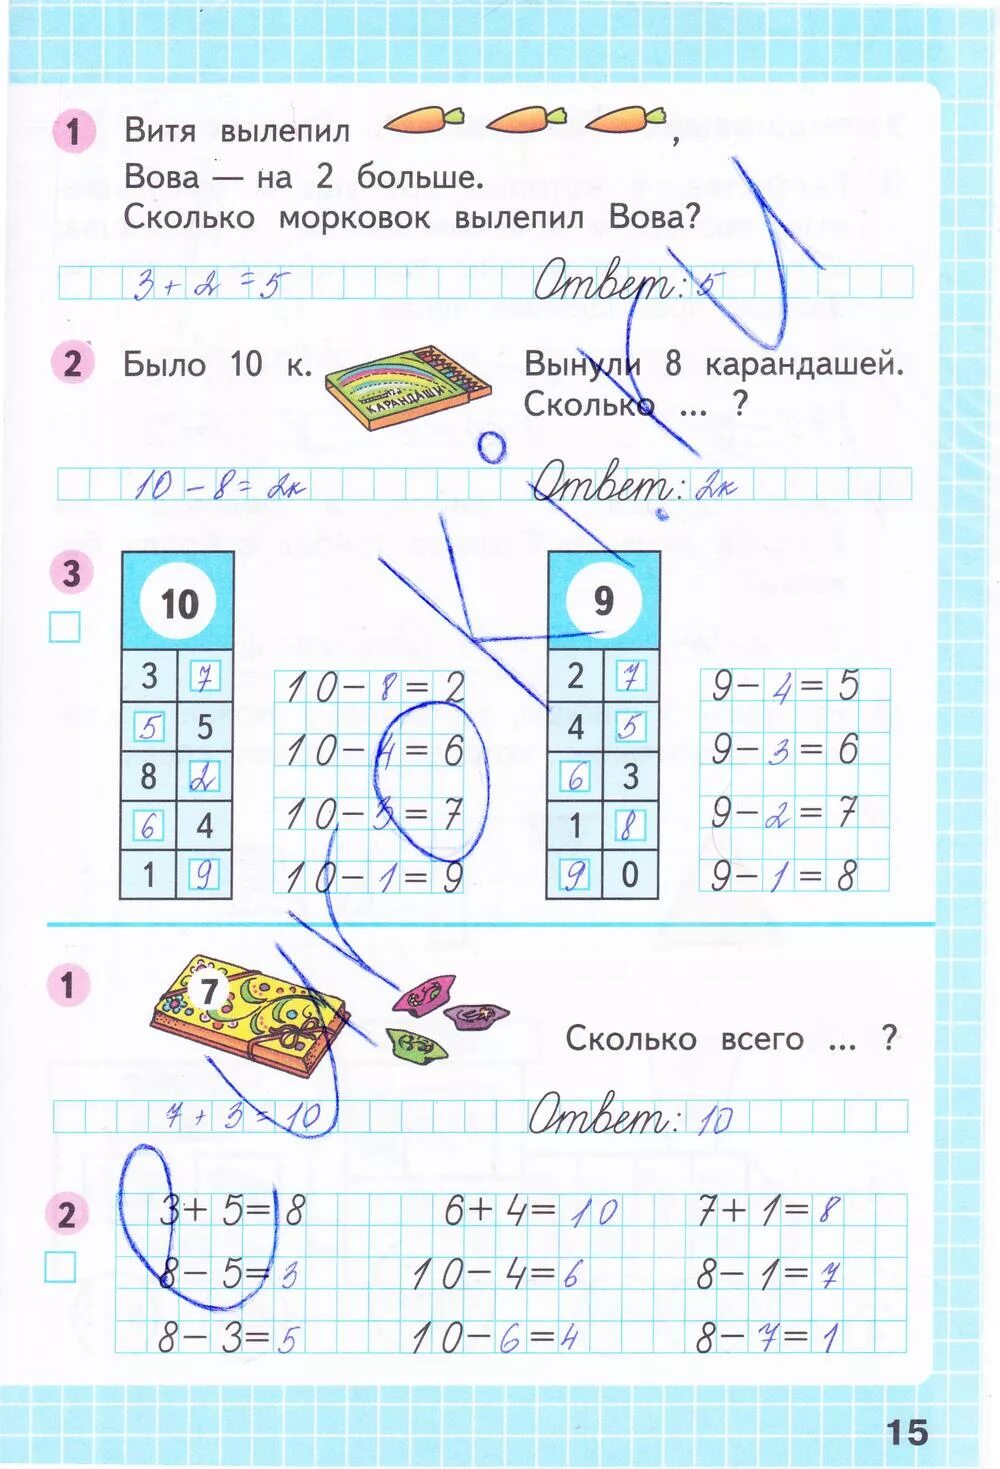 1 Витя вылепил ,
Вова — на 2 больше.
Сколько морковок вылепил Вова?
3 + 2 = 5 Ответ: 5
2 Было 10 к. КАРАНДАШИ Вынули 8 карандашей.
Сколько ... ?
10 - 8 = 2к Ответ: 2к
3
10
3 7
5 5
8 2
6 4
1 9
10 - 8 = 2
10 - 4 = 6
10 - 3 = 7
10 - 1 = 9
9
2 7
4 5
6 3
1 8
9 0
9 - 4 = 5
9 - 3 = 6
9 - 2 = 7
9 - 1 = 8
1 7 Сколько всего ... ?
7 + 3 = 10 Ответ: 10
2
3 + 5 = 8 6 + 4 = 10 7 + 1 = 8
8 - 5 = 3 10 - 4 = 6 8 - 1 = 7
8 - 3 = 5 10 - 6 = 4 8 - 7 = 1
15